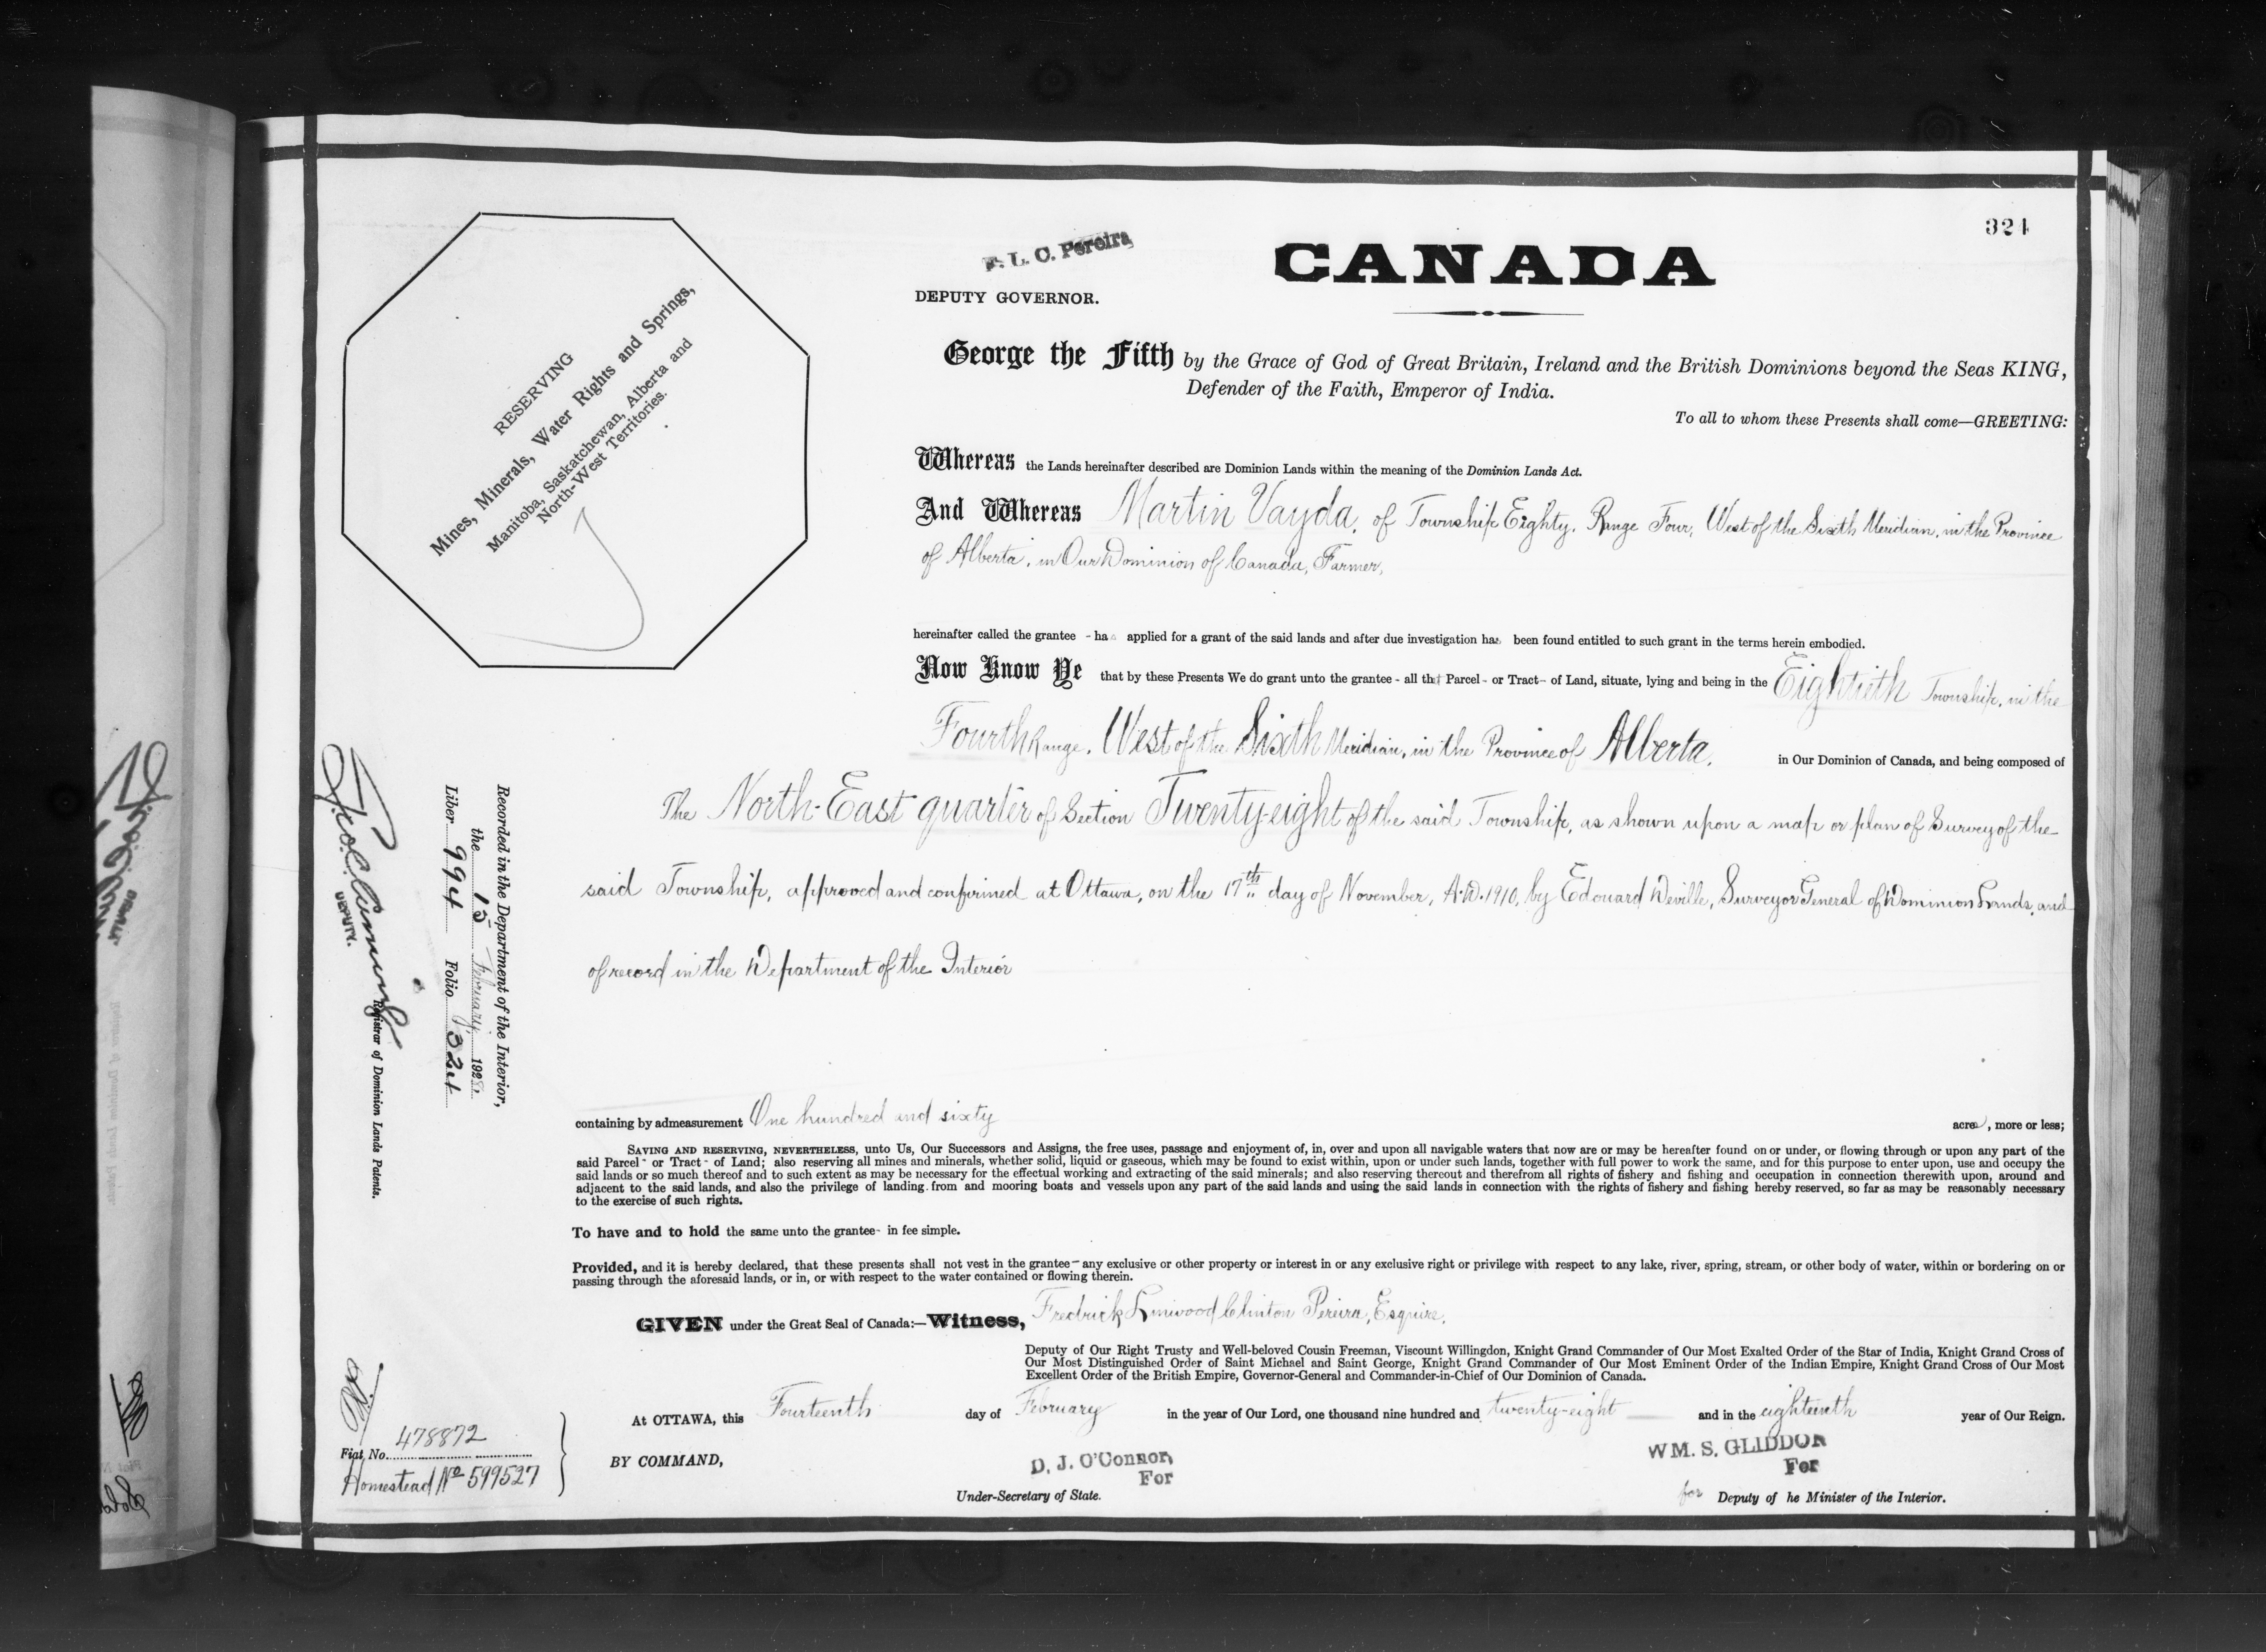 324
F. L. C. Pereira
DEPUTY GOVERNOR.
CANADA
George the Fifth by the Grace of God of Great Britain, Ireland and the British Dominions beyond the Seas KING,
Defender of the Faith, Emperor of India.
To all to whom these Presents shall come—GREETING:
RESERVING
Mines, Minerals, Water Rights and Springs,
Manitoba, Saskatchewan, Alberta and
North-West Territories.
Whereas the Lands hereinafter described are Dominion Lands within the meaning of the Dominion Lands Act.
And Whereas Martin Vayda, of Township Eighty, Range Four, West of the Sixth Meridian, in the Province
of Alberta, in Our Dominion of Canada, Farmer,
hereinafter called the grantee - has applied for a grant of the said lands and after due investigation has been found entitled to such grant in the terms herein embodied.
Now Know Ye that by these Presents We do grant unto the grantee - all that Parcel - or Tract - of Land, situate, lying and being in the Eightieth Township, in the
Fourth Range, West of the Sixth Meridian, in the Province of Alberta, in Our Dominion of Canada, and being composed of
The North-East quarter of Section Twenty-eight of the said Township, as shown upon a map or plan of Survey of the
said Township, approved and confirmed at Ottawa, on the 17th day of November, A.D. 1910, by Edouard Deville, Surveyor General of Dominion Lands, and
of record in the Department of the Interior
containing by admeasurement One hundred and sixty acres, more or less;
SAVING AND RESERVING, NEVERTHELESS, unto Us, Our Successors and Assigns, the free uses, passage and enjoyment of, in, over and upon all navigable waters that now are or may be hereafter found on or under, or flowing through or upon any part of the
said Parcel - or Tract - of Land; also reserving all mines and minerals, whether solid, liquid or gaseous, which may be found to exist within, upon or under such lands, together with full power to work the same, and for this purpose to enter upon, use and occupy the
said lands or so much thereof and to such extent as may be necessary for the effectual working and extracting of the said minerals; and also reserving thereout and therefrom all rights of fishery and fishing and occupation in connection therewith upon, around and
adjacent to the said lands, and also the privilege of landing from and mooring boats and vessels upon any part of the said lands and using the said lands in connection with the rights of fishery and fishing hereby reserved, so far as may be reasonably necessary
to the exercise of such rights.
To have and to hold the same unto the grantee - in fee simple.
Provided, and it is hereby declared, that these presents shall not vest in the grantee - any exclusive or other property or interest in or any exclusive right or privilege with respect to any lake, river, spring, stream, or other body of water, within or bordering on or
passing through the aforesaid lands, or in, or with respect to the water contained or flowing therein.
GIVEN under the Great Seal of Canada:—Witness, Fredrick Linwood Clinton Pereira, Esquire,
Deputy of Our Right Trusty and Well-beloved Cousin Freeman, Viscount Willingdon, Knight Grand Commander of Our Most Exalted Order of the Star of India, Knight Grand Cross of
Our Most Distinguished Order of Saint Michael and Saint George, Knight Grand Commander of Our Most Eminent Order of the Indian Empire, Knight Grand Cross of Our Most
Excellent Order of the British Empire, Governor-General and Commander-in-Chief of Our Dominion of Canada.
At OTTAWA, this Fourteenth day of February in the year of Our Lord, one thousand nine hundred and twenty-eight and in the eighteenth year of Our Reign.
BY COMMAND,
D. J. O'Connor,
For
Under-Secretary of State.
WM. S. GLIDDON
For
for Deputy of he Minister of the Interior.
Recorded in the Department of the Interior,
the 15 February, 1928.
Liber 994 Folio 324
Geo. C. Cuming
DEPUTY.
Registrar of Dominion Lands Patents.
Fiat No. 478872
Homestead No 599527